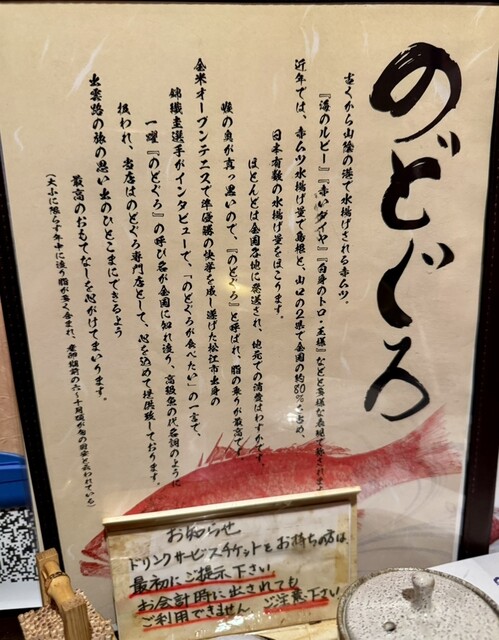 のどぐろ
古くから山陰の港で水揚げされる赤ムツ。
『海のルビー』『赤いダイヤ』『白身のトロ・王様』などと多様な表現で称されます
近年では、赤ムツ水揚げ量で島根と、山口の2県で全国の約80%を占め、
日本有数の水揚げ量をほこります。
ほとんどは全国各地に発送され、地元での消費はわずかです。
喉の奥が真っ黒いので、『のどぐろ』と呼ばれ、脂の乗りが最高です
全米オープンテニスで準優勝の快挙を成し遂げた松江市出身の
錦織圭選手がインタビューで、「のどぐろが食べたい」の一言で、
一躍『のどぐろ』の呼び名が全国に知れ渡り、高級魚の代名詞のように
扱われ、当店はのどぐろ専門店として、心を込めて提供致しております。
出雲路の旅の思い出のひとこまにできるよう
最高のおもてなしを心がけてまいります。
(大小に限らず年中に渡り脂が多く含まれ、産卵期前の六～十月頃が旬の目安と云われている)
お知らせ
ドリンクサービスチケットをお持ちの方は、
最初にご提示下さい
お会計時に出されても
ご利用できません ご注意下さい